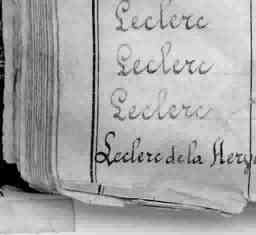 Leclerc
Leclerc
Leclerc
Leclerc de la Herv